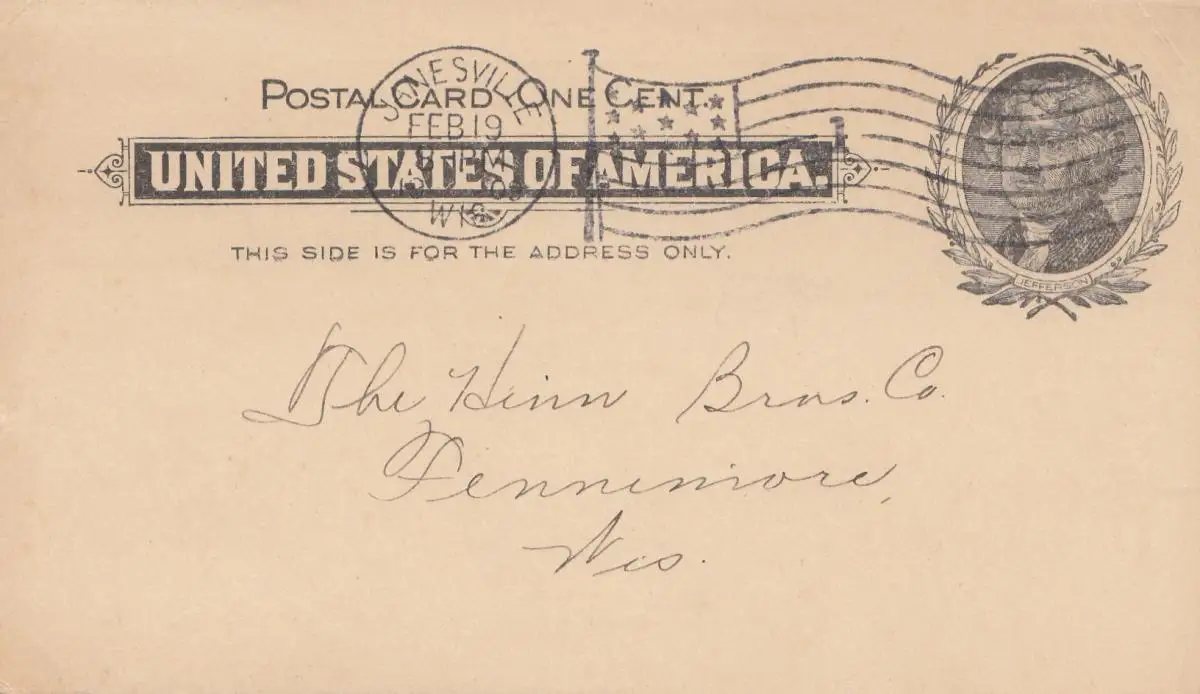 POSTAL CARD ONE CENT.
UNITED STATES OF AMERICA.
THIS SIDE IS FOR THE ADDRESS ONLY.
JANESVILLE
FEB 19
WIS
JEFFERSON
The Heim Bros. Co.
Fennimore,
Wis.